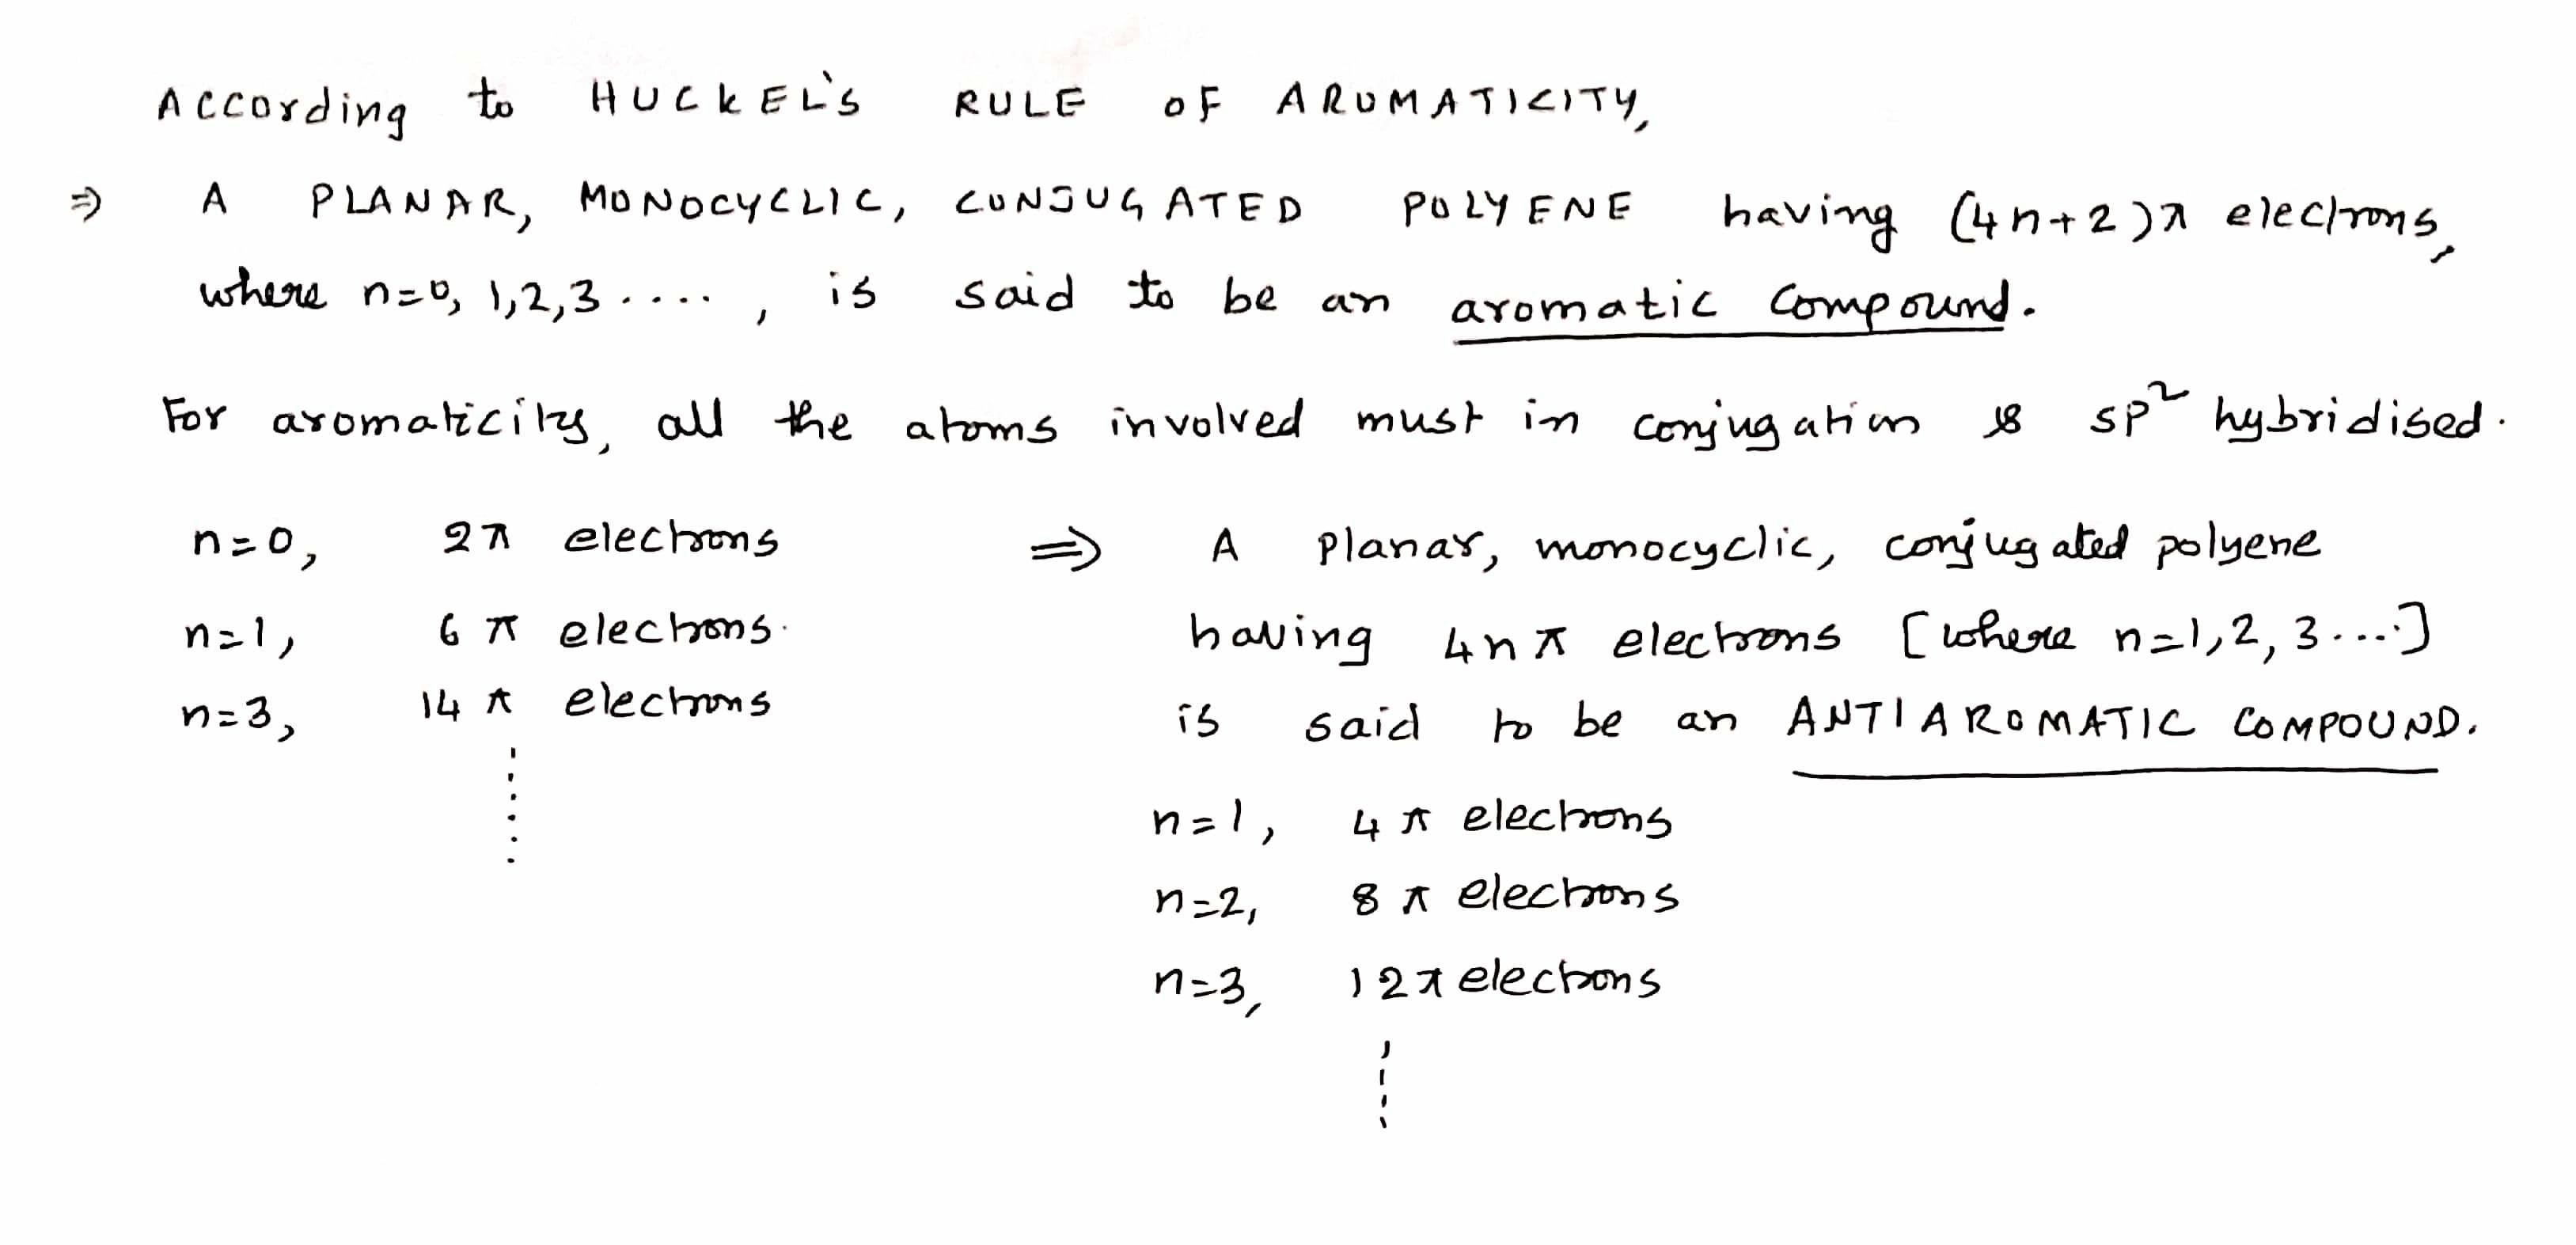 According to HUCKEL'S RULE OF AROMATICITY,
⇒ A PLANAR, MONOCYCLIC, CONJUGATED POLYENE having (4n+2)π electrons,
where n=0, 1,2,3 .... , is said to be an aromatic compound.
For aromaticity, all the atoms involved must in conjugation & sp² hybridised.
n=0, 2π electrons
n=1, 6 π electrons.
n=3, 14 π electrons
⇒ A planar, monocyclic, conjugated polyene
having 4nπ electrons [where n=1,2,3....]
is said to be an ANTIAROMATIC COMPOUND.
n=1, 4 π electrons
n=2, 8 π electrons
n=3, 12π electrons